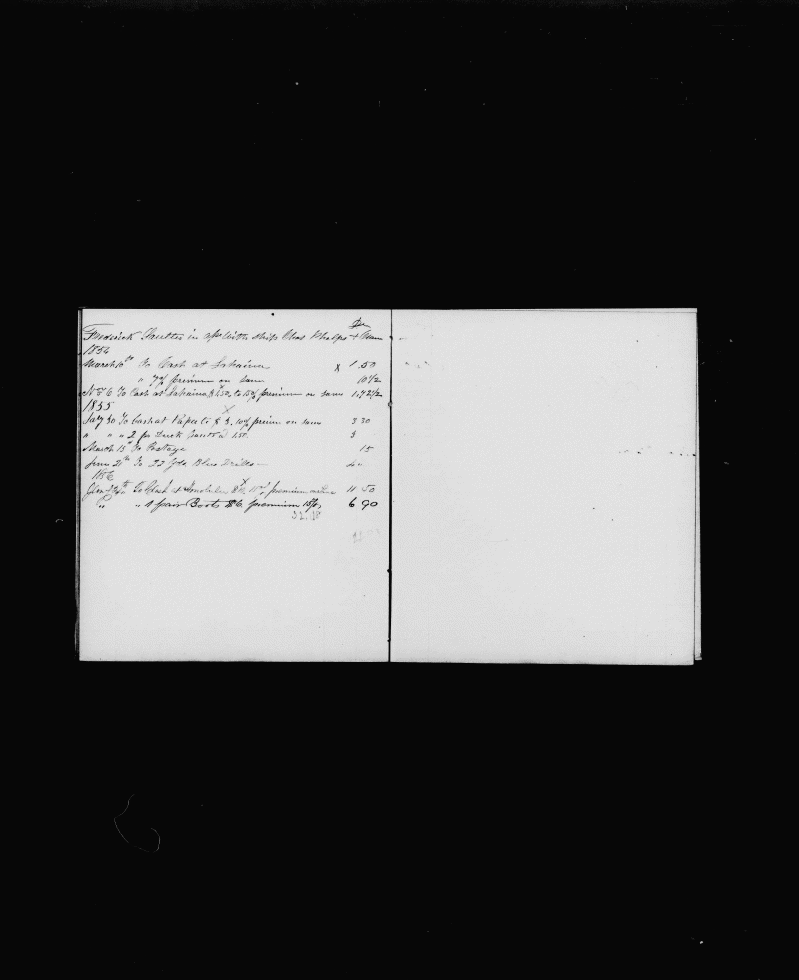 Dr
Frederick in a/c with ship Chas Phelps + Owners
1854
March 10th To Cash at Lahaina x 1.50
" 7% premium on same 10 1/2
Nov 6 To Cash at Lahaina $1.50 to 15% premium on same 1.72 1/2
1855
Jany 30 To Cash at $3. 10% prem on same 3 30
" " " 2 pr Duck Pants @ 1.50 3
March 15th To Postage 15
June 21th To 22 yds Blue Drills
1856
To Cash at Honolulu $10. 15% premium 11 50
" " 1 pair Boots $6. premium 15% 6 90